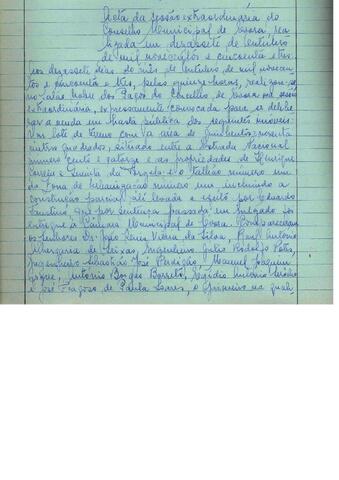 Acta da sessão extraordinária do
Conselho Municipal de Évora, rea-
lizada em dezassete de Outubro
de mil novecentos e cincoenta e três
Aos dezassete dias do mês de Outubro de mil novecen-
tos e cincoenta e três, pelas quinze horas, realizou-se
no salão nobre dos Paços do Concelho de Évora uma sessão
extraordinária, expressamente convocada para se delibe-
rar a venda em hasta pública dos seguintes imóveis:
Um lote de terreno com a área de quinhentos e sessenta
metros quadrados, situado entre a Estrada Nacional
número cento e catorze e as propriedades de Henrique
e o talhão número um
da Zona de Urbanização número um incluindo a
construção parcial ali levada a efeito por Eduardo
Faustino que por sentença passada em julgado foi
entregue à Câmara Municipal de Évora. Compareceram
os Senhores Dr. João Luiz Vieira da Silva, Raul António
Marcelino Júlio Rodolfo
Engenheiro Sebastião José Perdigão, Manuel Joaquim
António Borgão Barreto, António
e José Fragoso de Paula Soares, o primeiro na quali-